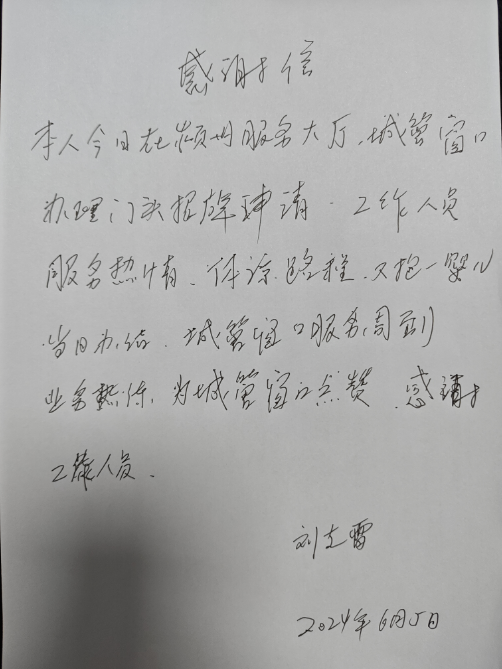 感谢信
本人今日在颍州服务大厅、城管窗口
办理门头招牌申请.工作人员
服务热情、体谅路程、又抱一婴儿
当日办结.城管窗口服务周到
业务熟练,为城管窗口点赞、感谢
工作人员.
刘志雷
2024年6月5日